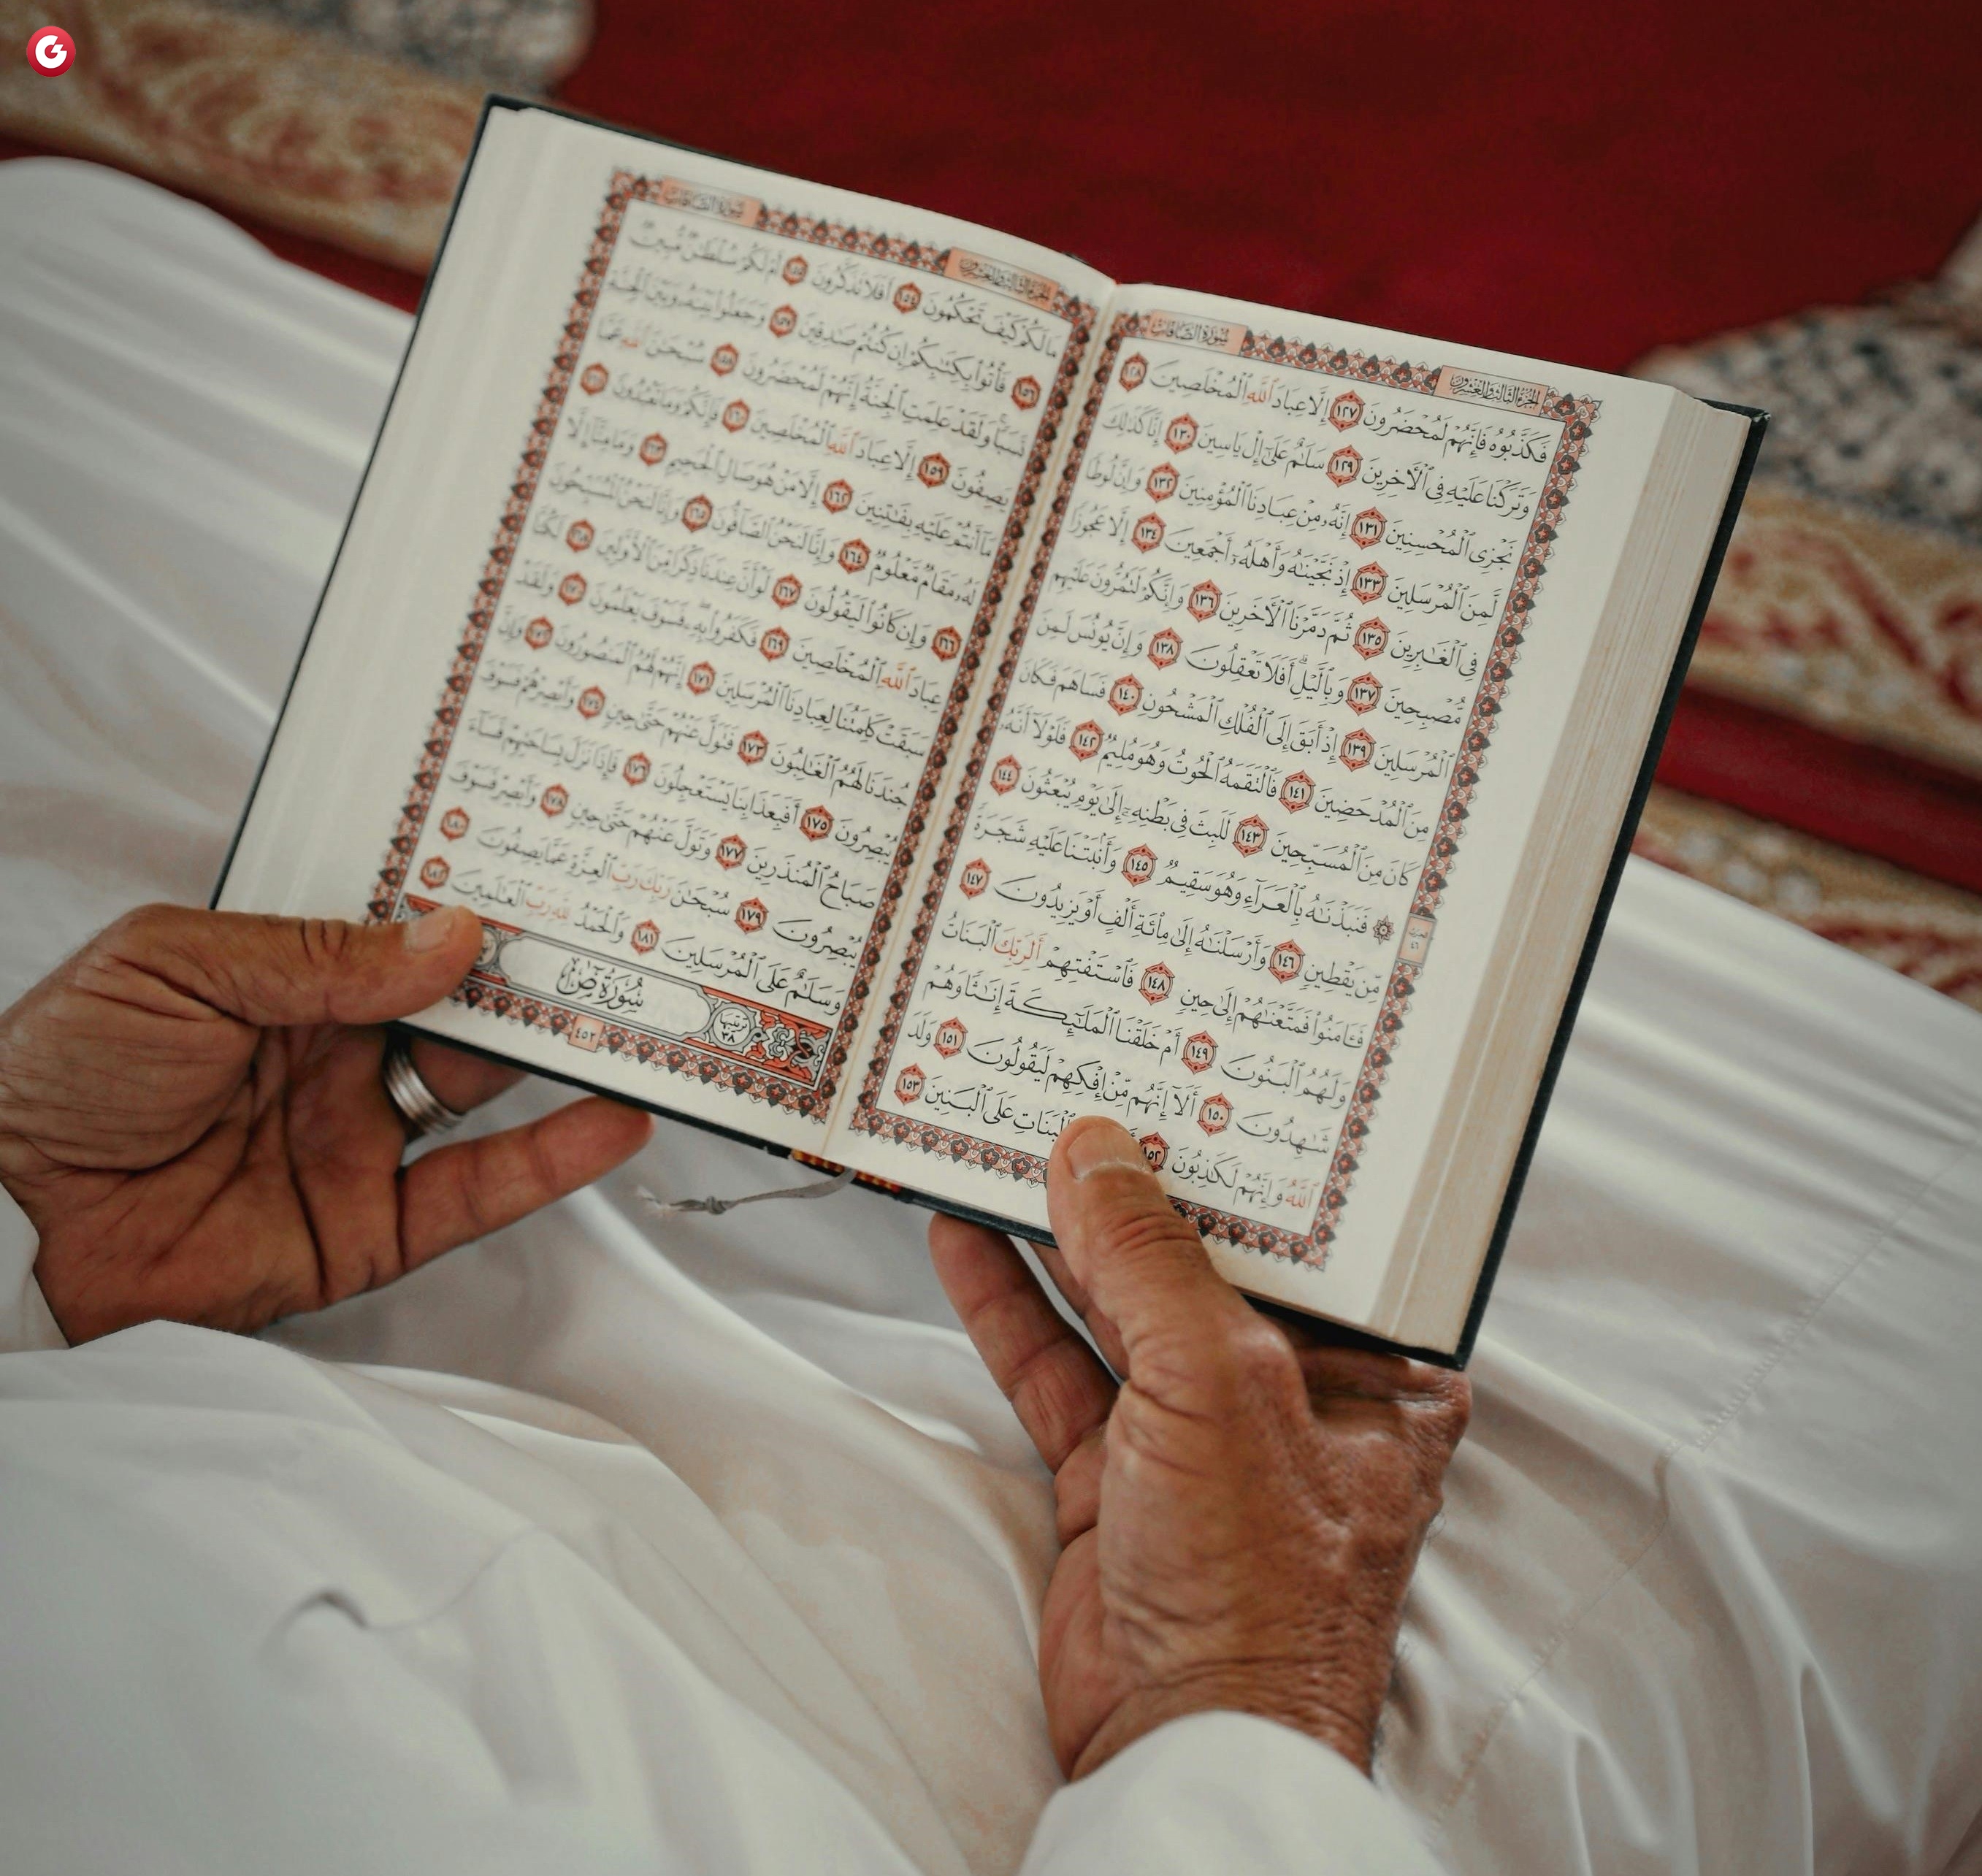 سُورَةُ الصَّافَّاتِ
الجُزْءُ الثَّالِثُ وَالعِشْرُونَ
فَكَذَّبُوهُ فَإِنَّهُمْ لَمُحْضَرُونَ ١٢٧ إِلَّا عِبَادَ ٱللَّهِ ٱلْمُخْلَصِينَ ١٢٨
وَتَرَكْنَا عَلَيْهِ فِى ٱلْءَاخِرِينَ ١٢٩ سَلَـٰمٌ عَلَىٰٓ إِلْ يَاسِينَ ١٣٠ إِنَّا كَذَٰلِكَ
نَجْزِى ٱلْمُحْسِنِينَ ١٣١ إِنَّهُۥ مِنْ عِبَادِنَا ٱلْمُؤْمِنِينَ ١٣٢ وَإِنَّ لُوطًا
لَّمِنَ ٱلْمُرْسَلِينَ ١٣٣ إِذْ نَجَّيْنَـٰهُ وَأَهْلَهُۥٓ أَجْمَعِينَ ١٣٤ إِلَّا عَجُوزًا
فِى ٱلْغَـٰبِرِينَ ١٣٥ ثُمَّ دَمَّرْنَا ٱلْءَاخَرِينَ ١٣٦ وَإِنَّكُمْ لَتَمُرُّونَ عَلَيْهِم
مُّصْبِحِينَ ١٣٧ وَبِٱلَّيْلِ ۗ أَفَلَا تَعْقِلُونَ ١٣٨ وَإِنَّ يُونُسَ لَمِنَ
ٱلْمُرْسَلِينَ ١٣٩ إِذْ أَبَقَ إِلَى ٱلْفُلْكِ ٱلْمَشْحُونِ ١٤٠ فَسَاهَمَ فَكَانَ
مِنَ ٱلْمُدْحَضِينَ ١٤١ فَٱلْتَقَمَهُ ٱلْحُوتُ وَهُوَ مُلِيمٌ ١٤٢ فَلَوْلَآ أَنَّهُۥ
كَانَ مِنَ ٱلْمُسَبِّحِينَ ١٤٣ لَلَبِثَ فِى بَطْنِهِۦٓ إِلَىٰ يَوْمِ يُبْعَثُونَ ١٤٤
۞ فَنَبَذْنَـٰهُ بِٱلْعَرَآءِ وَهُوَ سَقِيمٌ ١٤٥ وَأَنۢبَتْنَا عَلَيْهِ شَجَرَةً
مِّن يَقْطِينٍ ١٤٦ وَأَرْسَلْنَـٰهُ إِلَىٰ مِا۟ئَةِ أَلْفٍ أَوْ يَزِيدُونَ ١٤٧
فَـَٔامَنُوا۟ فَمَتَّعْنَـٰهُمْ إِلَىٰ حِينٍ ١٤٨ فَٱسْتَفْتِهِمْ أَلِرَبِّكَ ٱلْبَنَاتُ
وَلَهُمُ ٱلْبَنُونَ ١٤٩ أَمْ خَلَقْنَا ٱلْمَلَـٰٓئِكَةَ إِنَـٰثًا وَهُمْ
شَـٰهِدُونَ ١٥٠ أَلَآ إِنَّهُم مِّنْ إِفْكِهِمْ لَيَقُولُونَ ١٥١ وَلَدَ
ٱللَّهُ وَإِنَّهُمْ لَكَـٰذِبُونَ ١٥٢ ٱلْبَنَاتِ عَلَى ٱلْبَنِينَ ١٥٣
سُورَةُ الصَّافَّاتِ
الجُزْءُ الثَّالِثُ وَالعِشْرُونَ
مَا لَكُمْ كَيْفَ تَحْكُمُونَ ١٥٤ أَفَلَا تَذَكَّرُونَ ١٥٥ أَمْ لَكُمْ سُلْطَـٰنٌ مُّبِينٌ
١٥٦ فَأْتُوا۟ بِكِتَـٰبِكُمْ إِن كُنتُمْ صَـٰدِقِينَ ١٥٧ وَجَعَلُوا۟ بَيْنَهُۥ وَبَيْنَ ٱلْجِنَّةِ
نَسَبًا ۚ وَلَقَدْ عَلِمَتِ ٱلْجِنَّةُ إِنَّهُمْ لَمُحْضَرُونَ ١٥٨ سُبْحَـٰنَ ٱللَّهِ عَمَّا
يَصِفُونَ ١٥٩ إِلَّا عِبَادَ ٱللَّهِ ٱلْمُخْلَصِينَ ١٦٠ فَإِنَّكُمْ وَمَا تَعْبُدُونَ ١٦١
مَآ أَنتُمْ عَلَيْهِ بِفَـٰتِنِينَ ١٦٢ إِلَّا مَنْ هُوَ صَالِ ٱلْجَحِيمِ ١٦٣ وَمَا مِنَّآ إِلَّا
لَهُۥ مَقَامٌ مَّعْلُومٌ ١٦٤ وَإِنَّا لَنَحْنُ ٱلصَّآفُّونَ ١٦٥ وَإِنَّا لَنَحْنُ ٱلْمُسَبِّحُونَ
١٦٦ وَإِن كَانُوا۟ لَيَقُولُونَ ١٦٧ لَوْ أَنَّ عِندَنَا ذِكْرًا مِّنَ ٱلْأَوَّلِينَ ١٦٨ لَكُنَّا
عِبَادَ ٱللَّهِ ٱلْمُخْلَصِينَ ١٦٩ فَكَفَرُوا۟ بِهِۦ ۖ فَسَوْفَ يَعْلَمُونَ ١٧٠ وَلَقَدْ
سَبَقَتْ كَلِمَتُنَا لِعِبَادِنَا ٱلْمُرْسَلِينَ ١٧١ إِنَّهُمْ لَهُمُ ٱلْمَنصُورُونَ ١٧٢ وَإِنَّ
جُندَنَا لَهُمُ ٱلْغَـٰلِبُونَ ١٧٣ فَتَوَلَّ عَنْهُمْ حَتَّىٰ حِينٍ ١٧٤ وَأَبْصِرْهُمْ فَسَوْفَ
يُبْصِرُونَ ١٧٥ أَفَبِعَذَابِنَا يَسْتَعْجِلُونَ ١٧٦ فَإِذَا نَزَلَ بِسَاحَتِهِمْ فَسَآءَ
صَبَاحُ ٱلْمُنذَرِينَ ١٧٧ وَتَوَلَّ عَنْهُمْ حَتَّىٰ حِينٍ ١٧٨ وَأَبْصِرْ فَسَوْفَ
يُبْصِرُونَ ١٧٩ سُبْحَـٰنَ رَبِّكَ رَبِّ ٱلْعِزَّةِ عَمَّا يَصِفُونَ ١٨٠
وَسَلَـٰمٌ عَلَى ٱلْمُرْسَلِينَ ١٨١ وَٱلْحَمْدُ لِلَّهِ رَبِّ ٱلْعَـٰلَمِينَ ١٨٢
ترتيبها ٣٨ سُورَةُ صٓ
٤٥٢